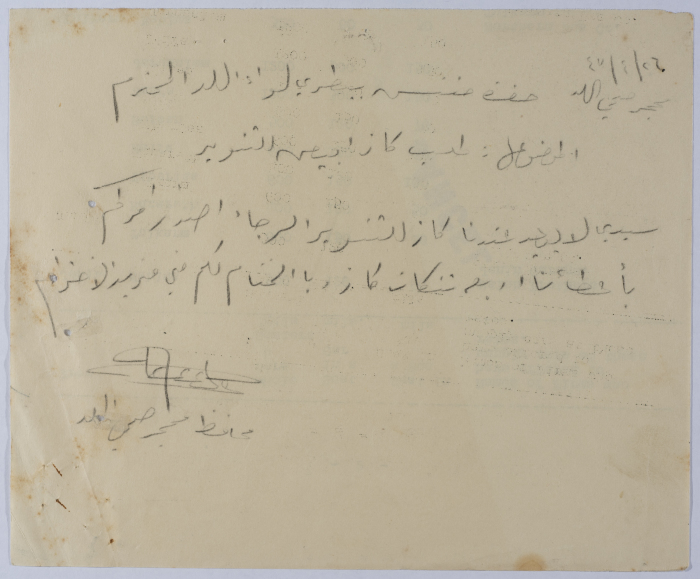 ٤٧/٤/٢٦
محجر صحي اللد
حضرة مفتش بيطري لواء اللد المحترم
الموضوع : طلب كاز ابيض التنوير
سيدي لا يوجد عندنا كاز التنوير الرجاء اصدار امركم
بأعطائنا اربع تنكات كاز وبالختام لكم مني مزيد الاحترام
محافظ محجر صحي اللد